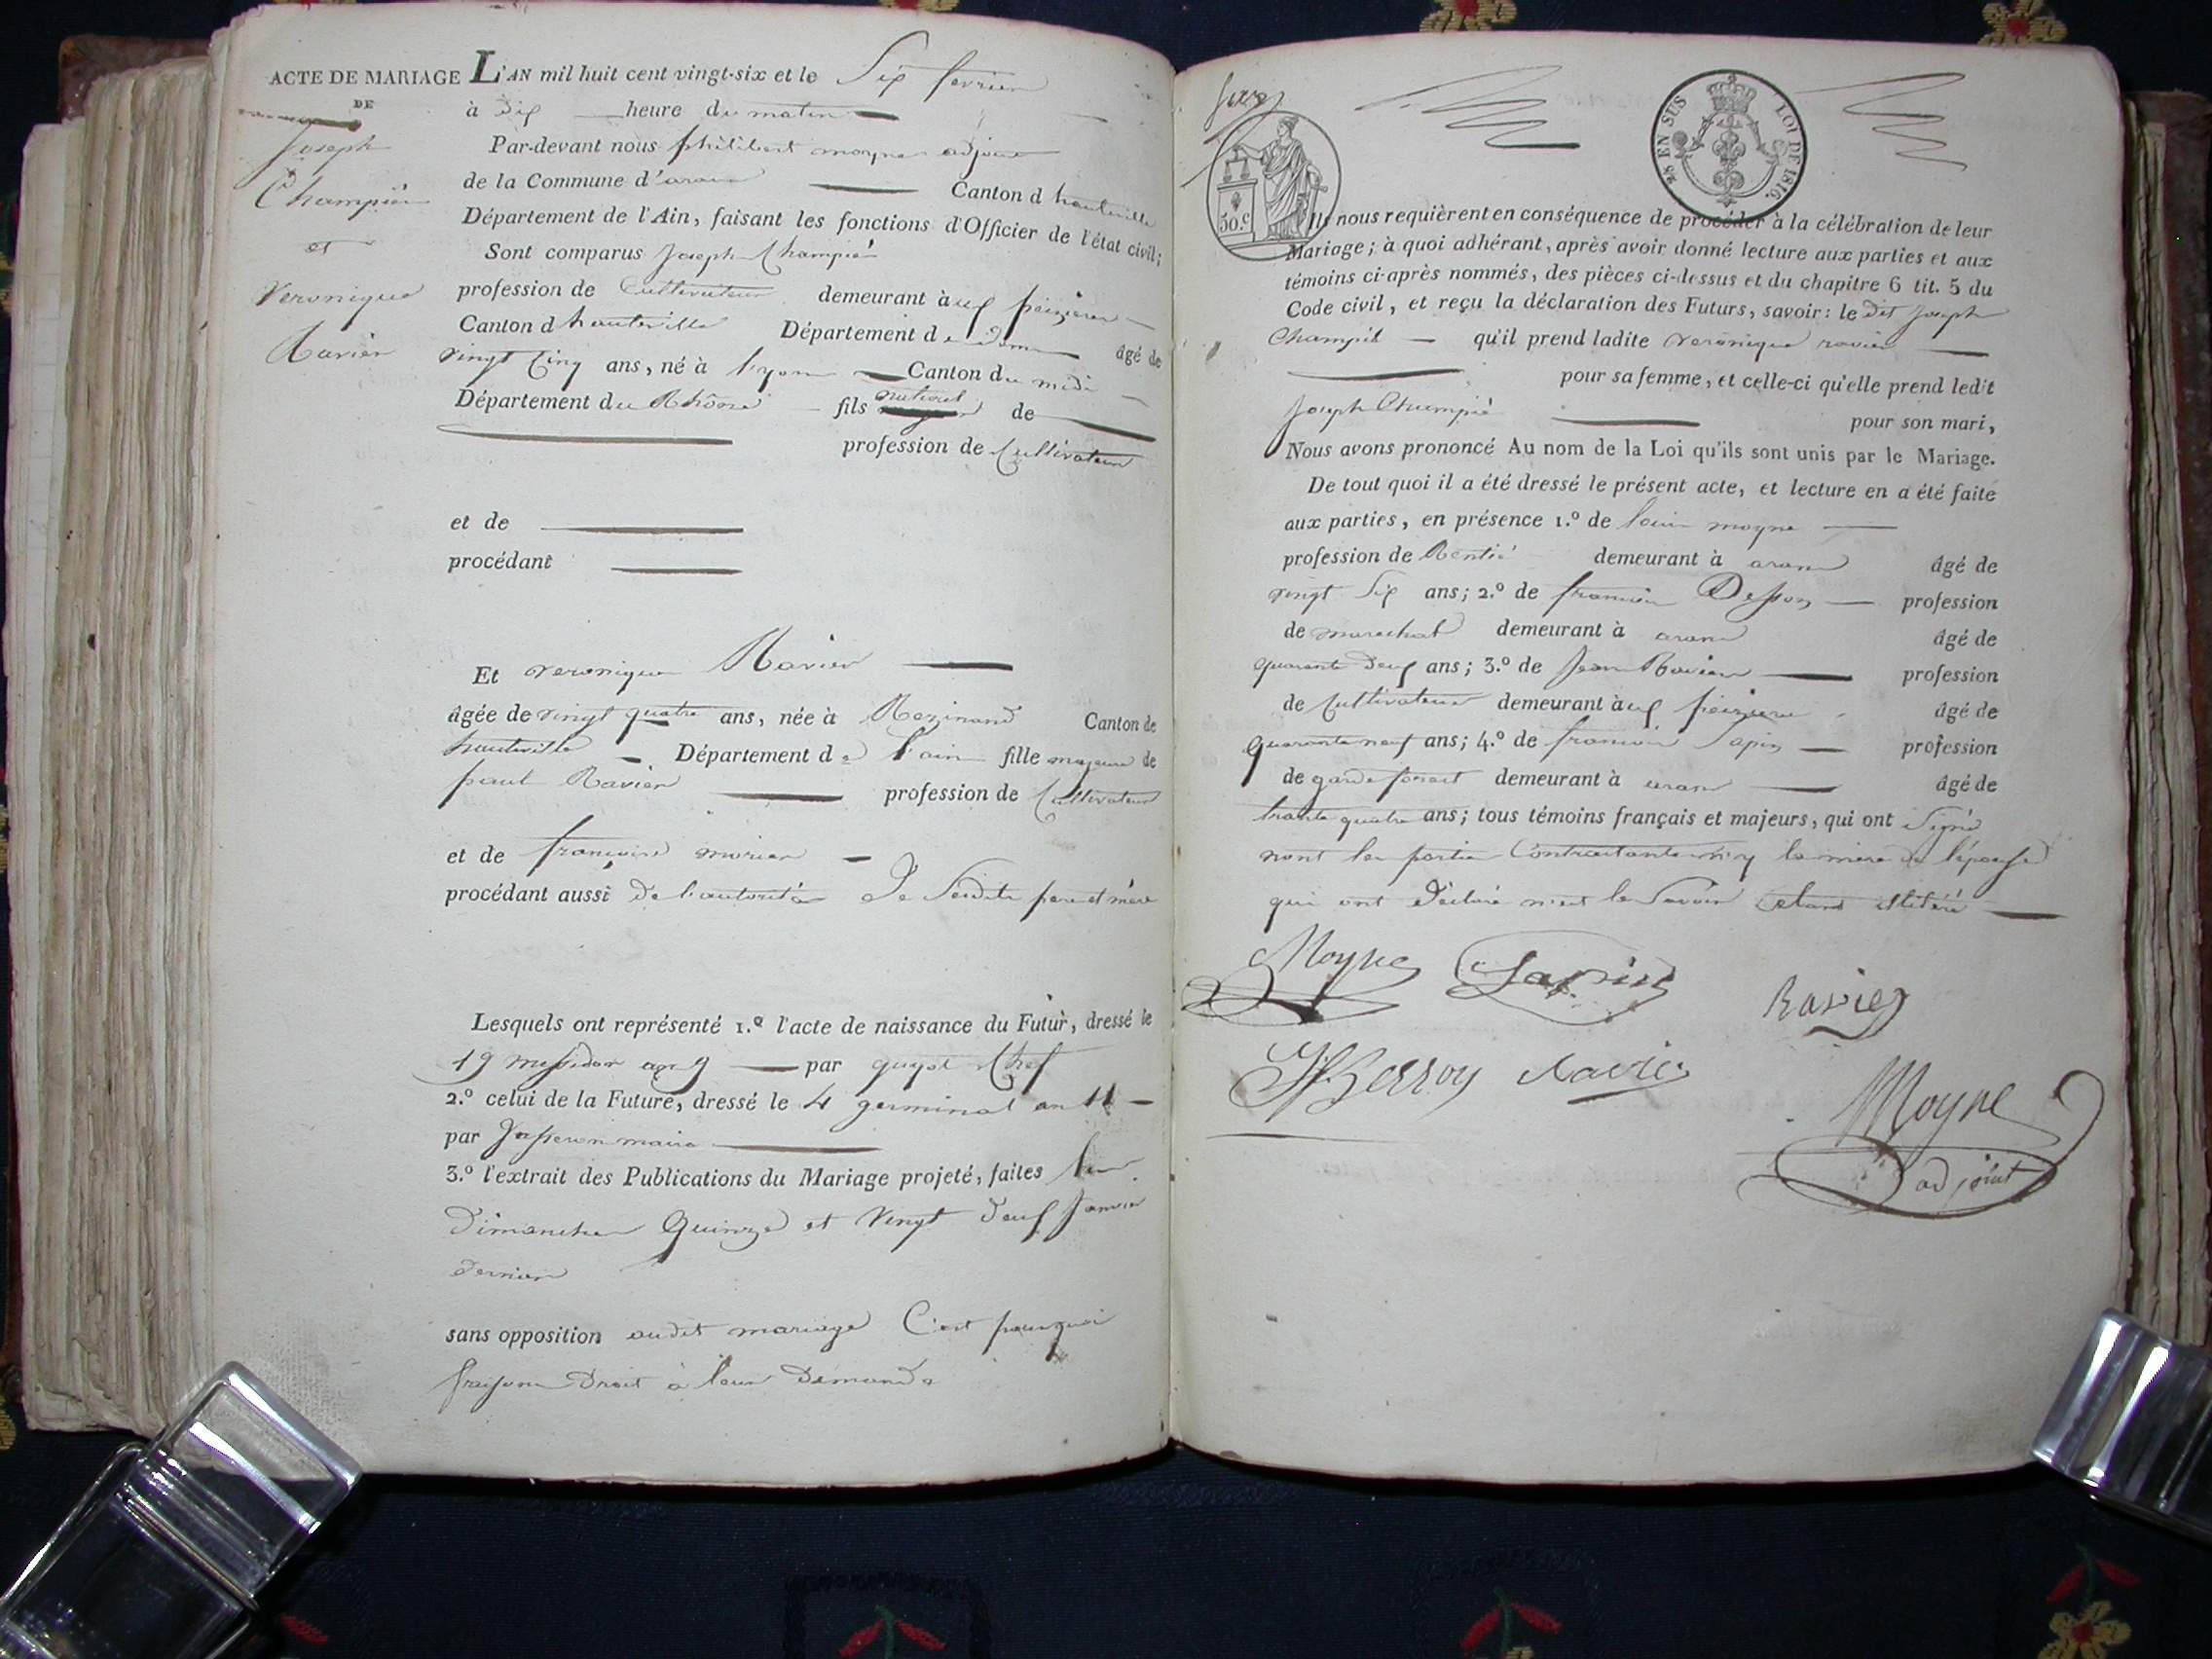 ACTE DE MARIAGE
DE
Joseph
Champié
et
Veronique
Ravier
L'AN mil huit cent vingt-six et le Six fevrier
à dix heure du matin
Par-devant nous philibert moyne adjoint
de la Commune d'aran Canton d hauteville
Département de l'Ain, faisant les fonctions d'Officier de l'état civil;
Sont comparus Joseph Champié
profession de Cultivateur demeurant à
Canton d hauteville Département de l'ain âgé de
vingt Cinq ans, né à lyon Canton du midi
Département du Rhône fils naturel de
profession de Cultivateur
et de
procédant
Et veronique Ravier
âgée de vingt quatre ans, née à Rezinand Canton de
hauteville Département de l'ain fille majeure de
paul Ravier profession de Cultivateur
et de francoise
procédant aussi De l'autorité De Sesdits pere et mère
Lesquels ont représenté 1.º l'acte de naissance du Futur, dressé le
19 messidor an 9 par guyot Chef
2.º celui de la Future, dressé le 4 germinal an 11
par Jasseron maire
3.º l'extrait des Publications du Mariage projeté, faites les
Dimanches Quinze et Vingt deux Janvier
dernier
sans opposition audit mariage C'est pourquoi
faisons Droit à leur Demande
28 EN SUS LOI DE 1816.
50.c
Ils nous requièrent en conséquence de procéder à la célébration de leur
Mariage; à quoi adhérant, après avoir donné lecture aux parties et aux
témoins ci-après nommés, des pièces ci-dessus et du chapitre 6 tit. 5 du
Code civil, et reçu la déclaration des Futurs, savoir: le dit Joseph
Champié qu'il prend ladite veronique ravier
pour sa femme, et celle-ci qu'elle prend ledit
Joseph Champié pour son mari,
Nous avons prononcé Au nom de la Loi qu'ils sont unis par le Mariage.
De tout quoi il a été dressé le présent acte, et lecture en a été faite
aux parties, en présence 1.º de louis moyne
profession de Rentié demeurant à aran âgé de
vingt Six ans; 2.º de francois profession
de marechal demeurant à aran âgé de
quarante deux ans; 3.º de Jean Ravier profession
de Cultivateur demeurant à âgé de
quarante neuf ans; 4.º de francois Sapin profession
de garde forest demeurant à aran âgé de
trante quatre ans; tous témoins français et majeurs, qui ont Signé
nont les parties Contractantes n'y la mere de l'épouse
qui ont Déclaré n'est le Savoir etant illitéré
Moyne Sapin Ravier
Ravier
Moyne
adjoint